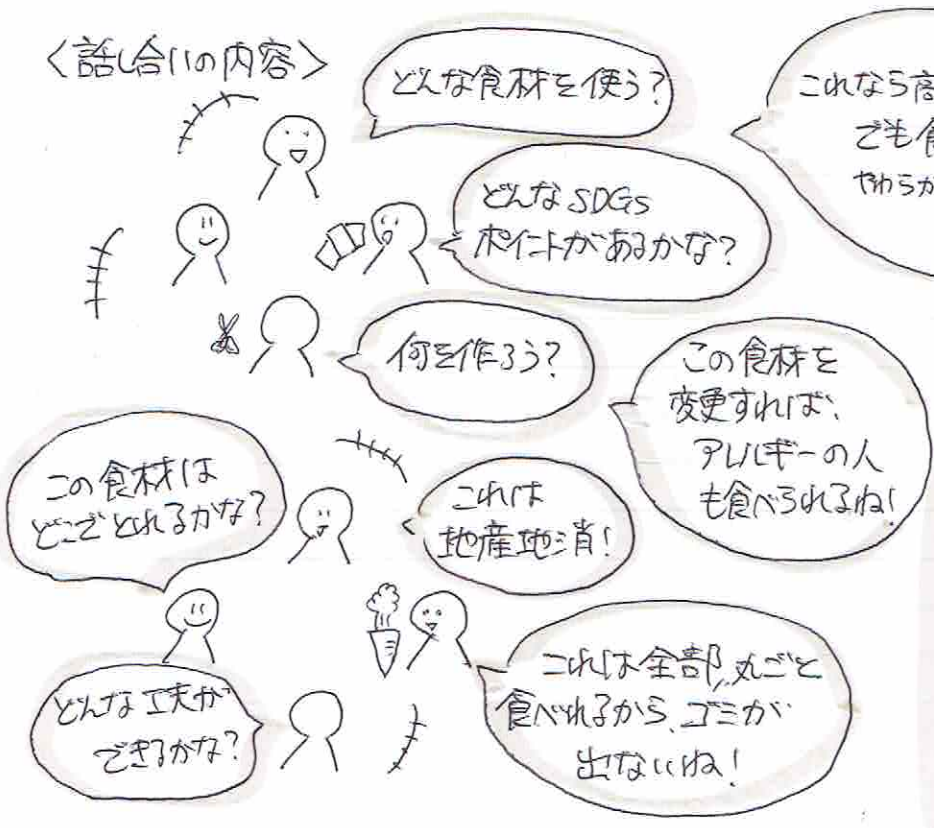 〈話し合いの内容〉
どんな食材を使う?
これなら
でも
やわらか
どんなSDGs
ポイントがあるかな?
何を作ろう?
この食材を
変更すれば、
アレルギーの人
も食べられるね!
この食材は
どこでとれるかな?
これは
地産地消!
どんな工夫が
できるかな?
これは全部、丸ごと
食べれるから、ゴミが
出ないね!